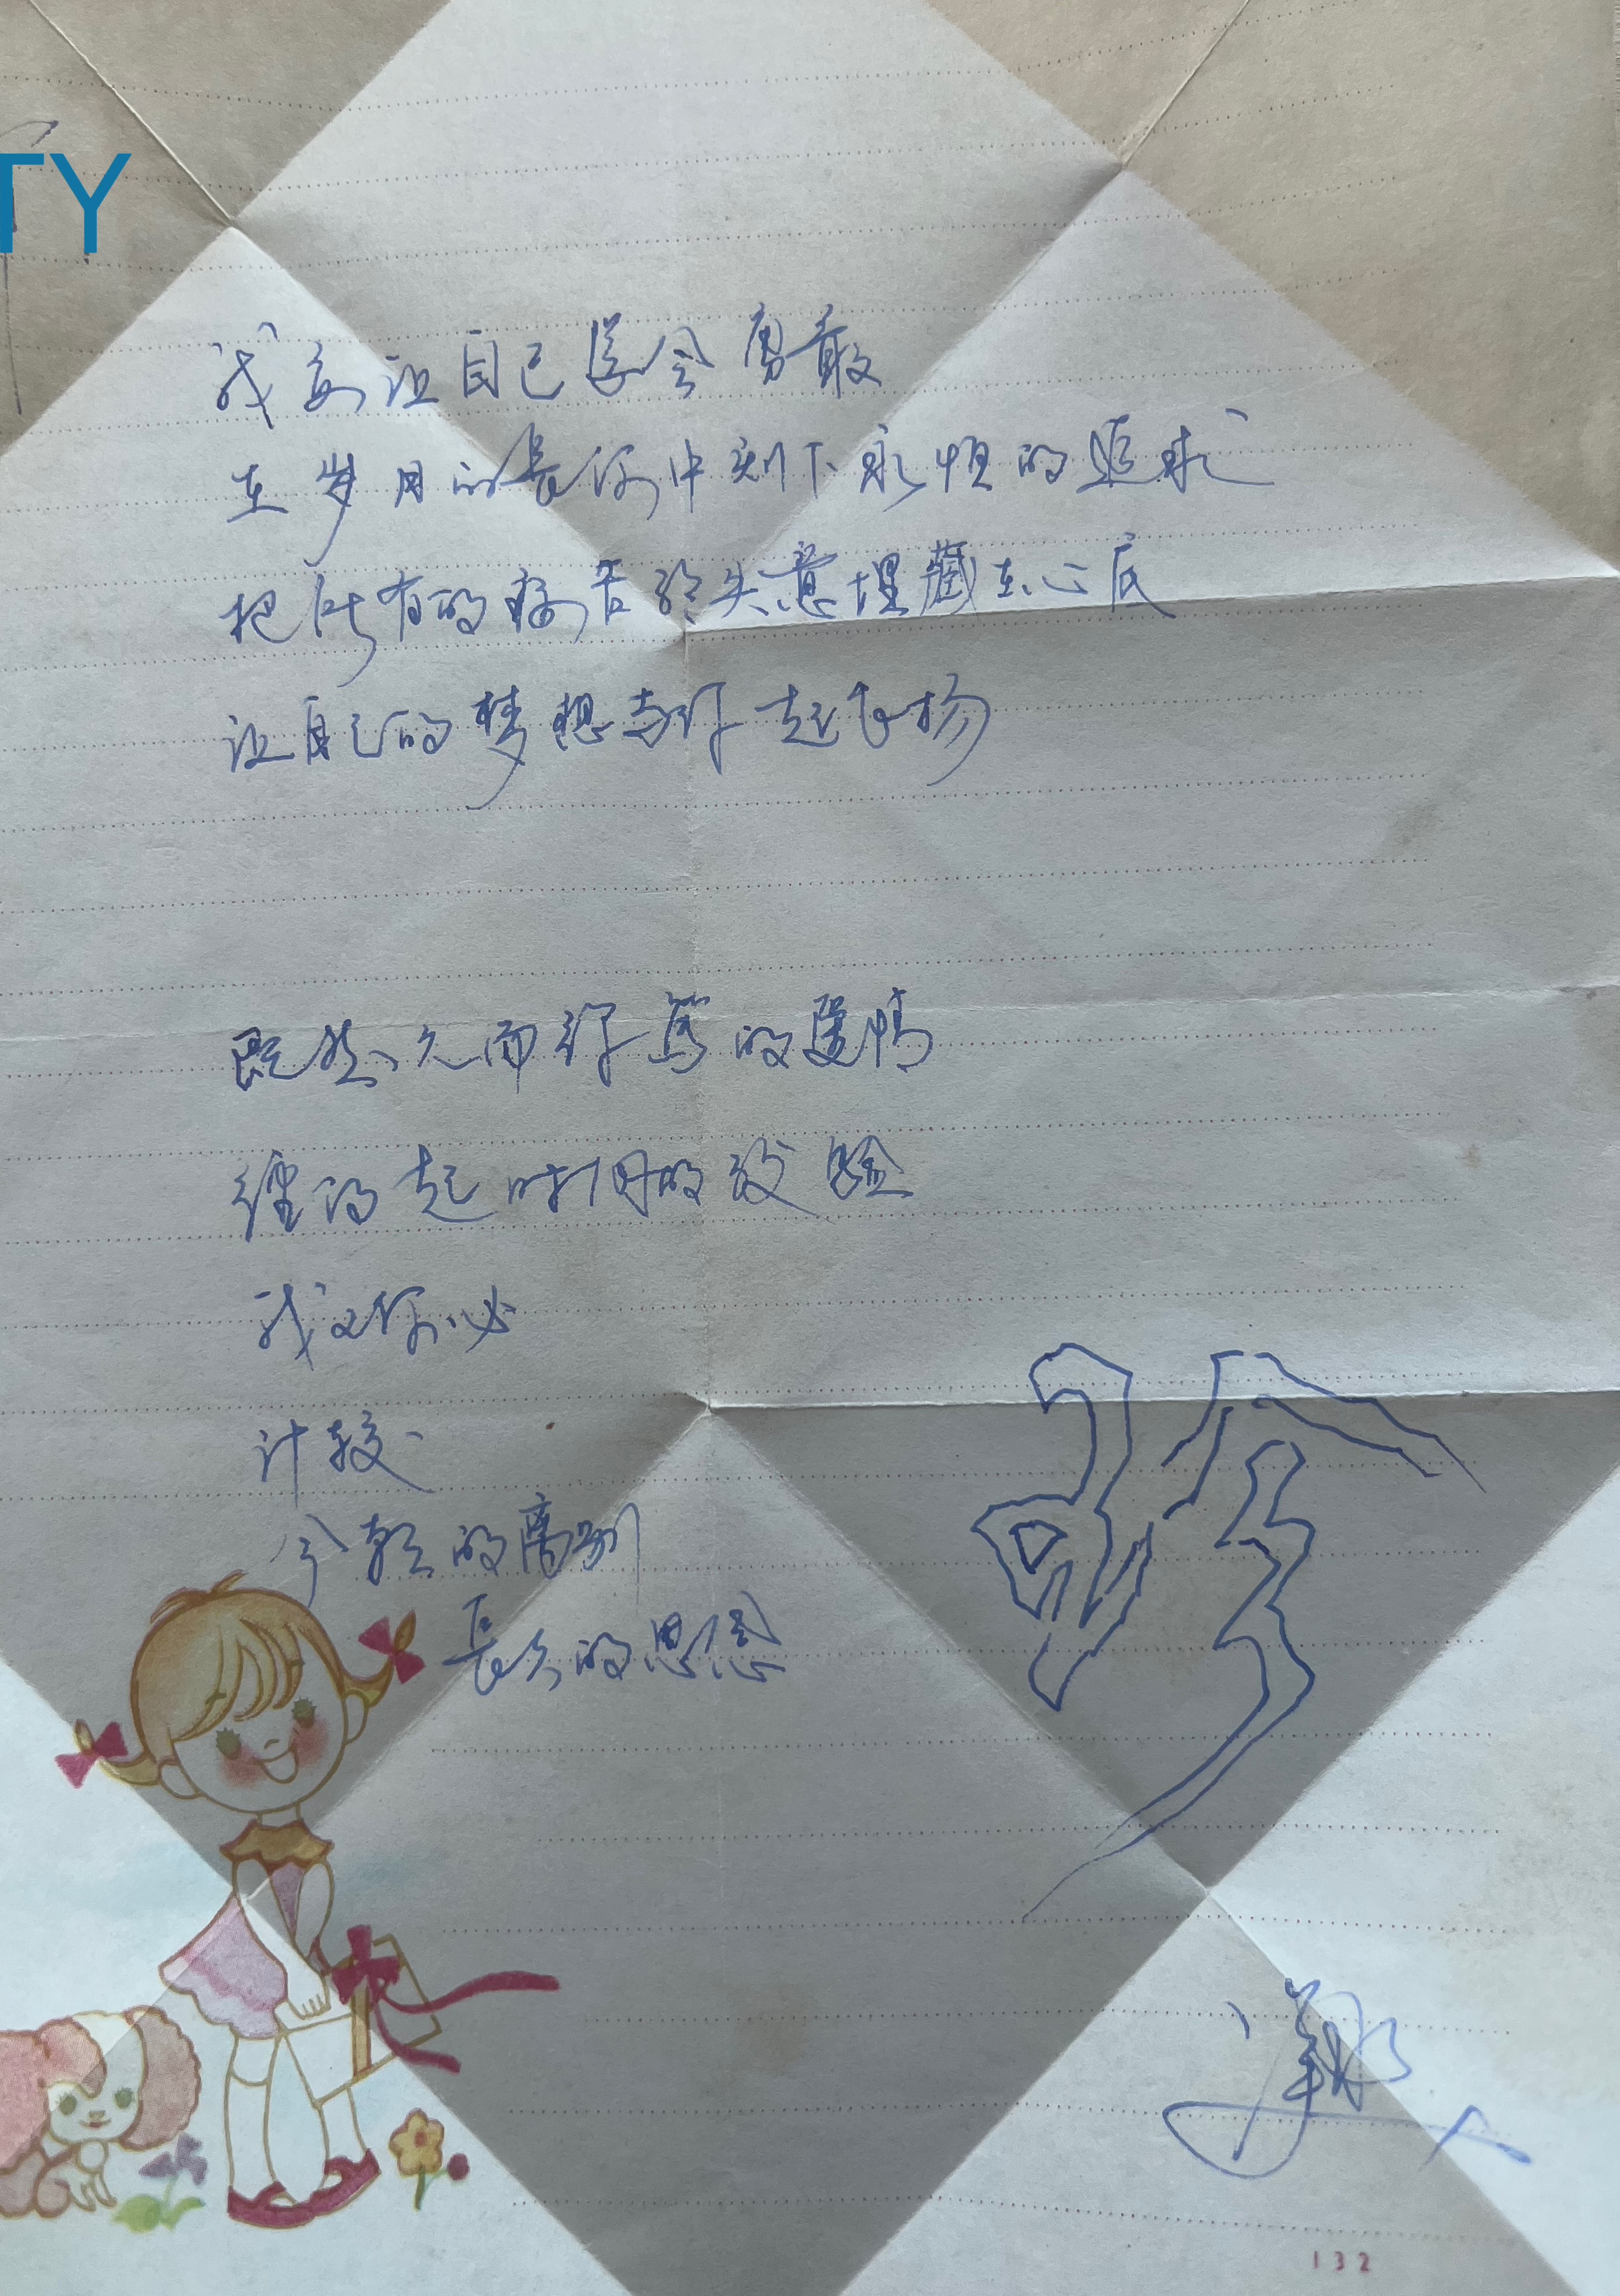 TY
我要让自己学会勇敢
在岁月的長河中刻下永恒的追求
把所有的痛苦与失意埋藏在心底
让自己的梦想与你一起飞扬
既然 的爱情
经得起时间的考验
我又何必
计较
今朝的离别
長久的思念
132